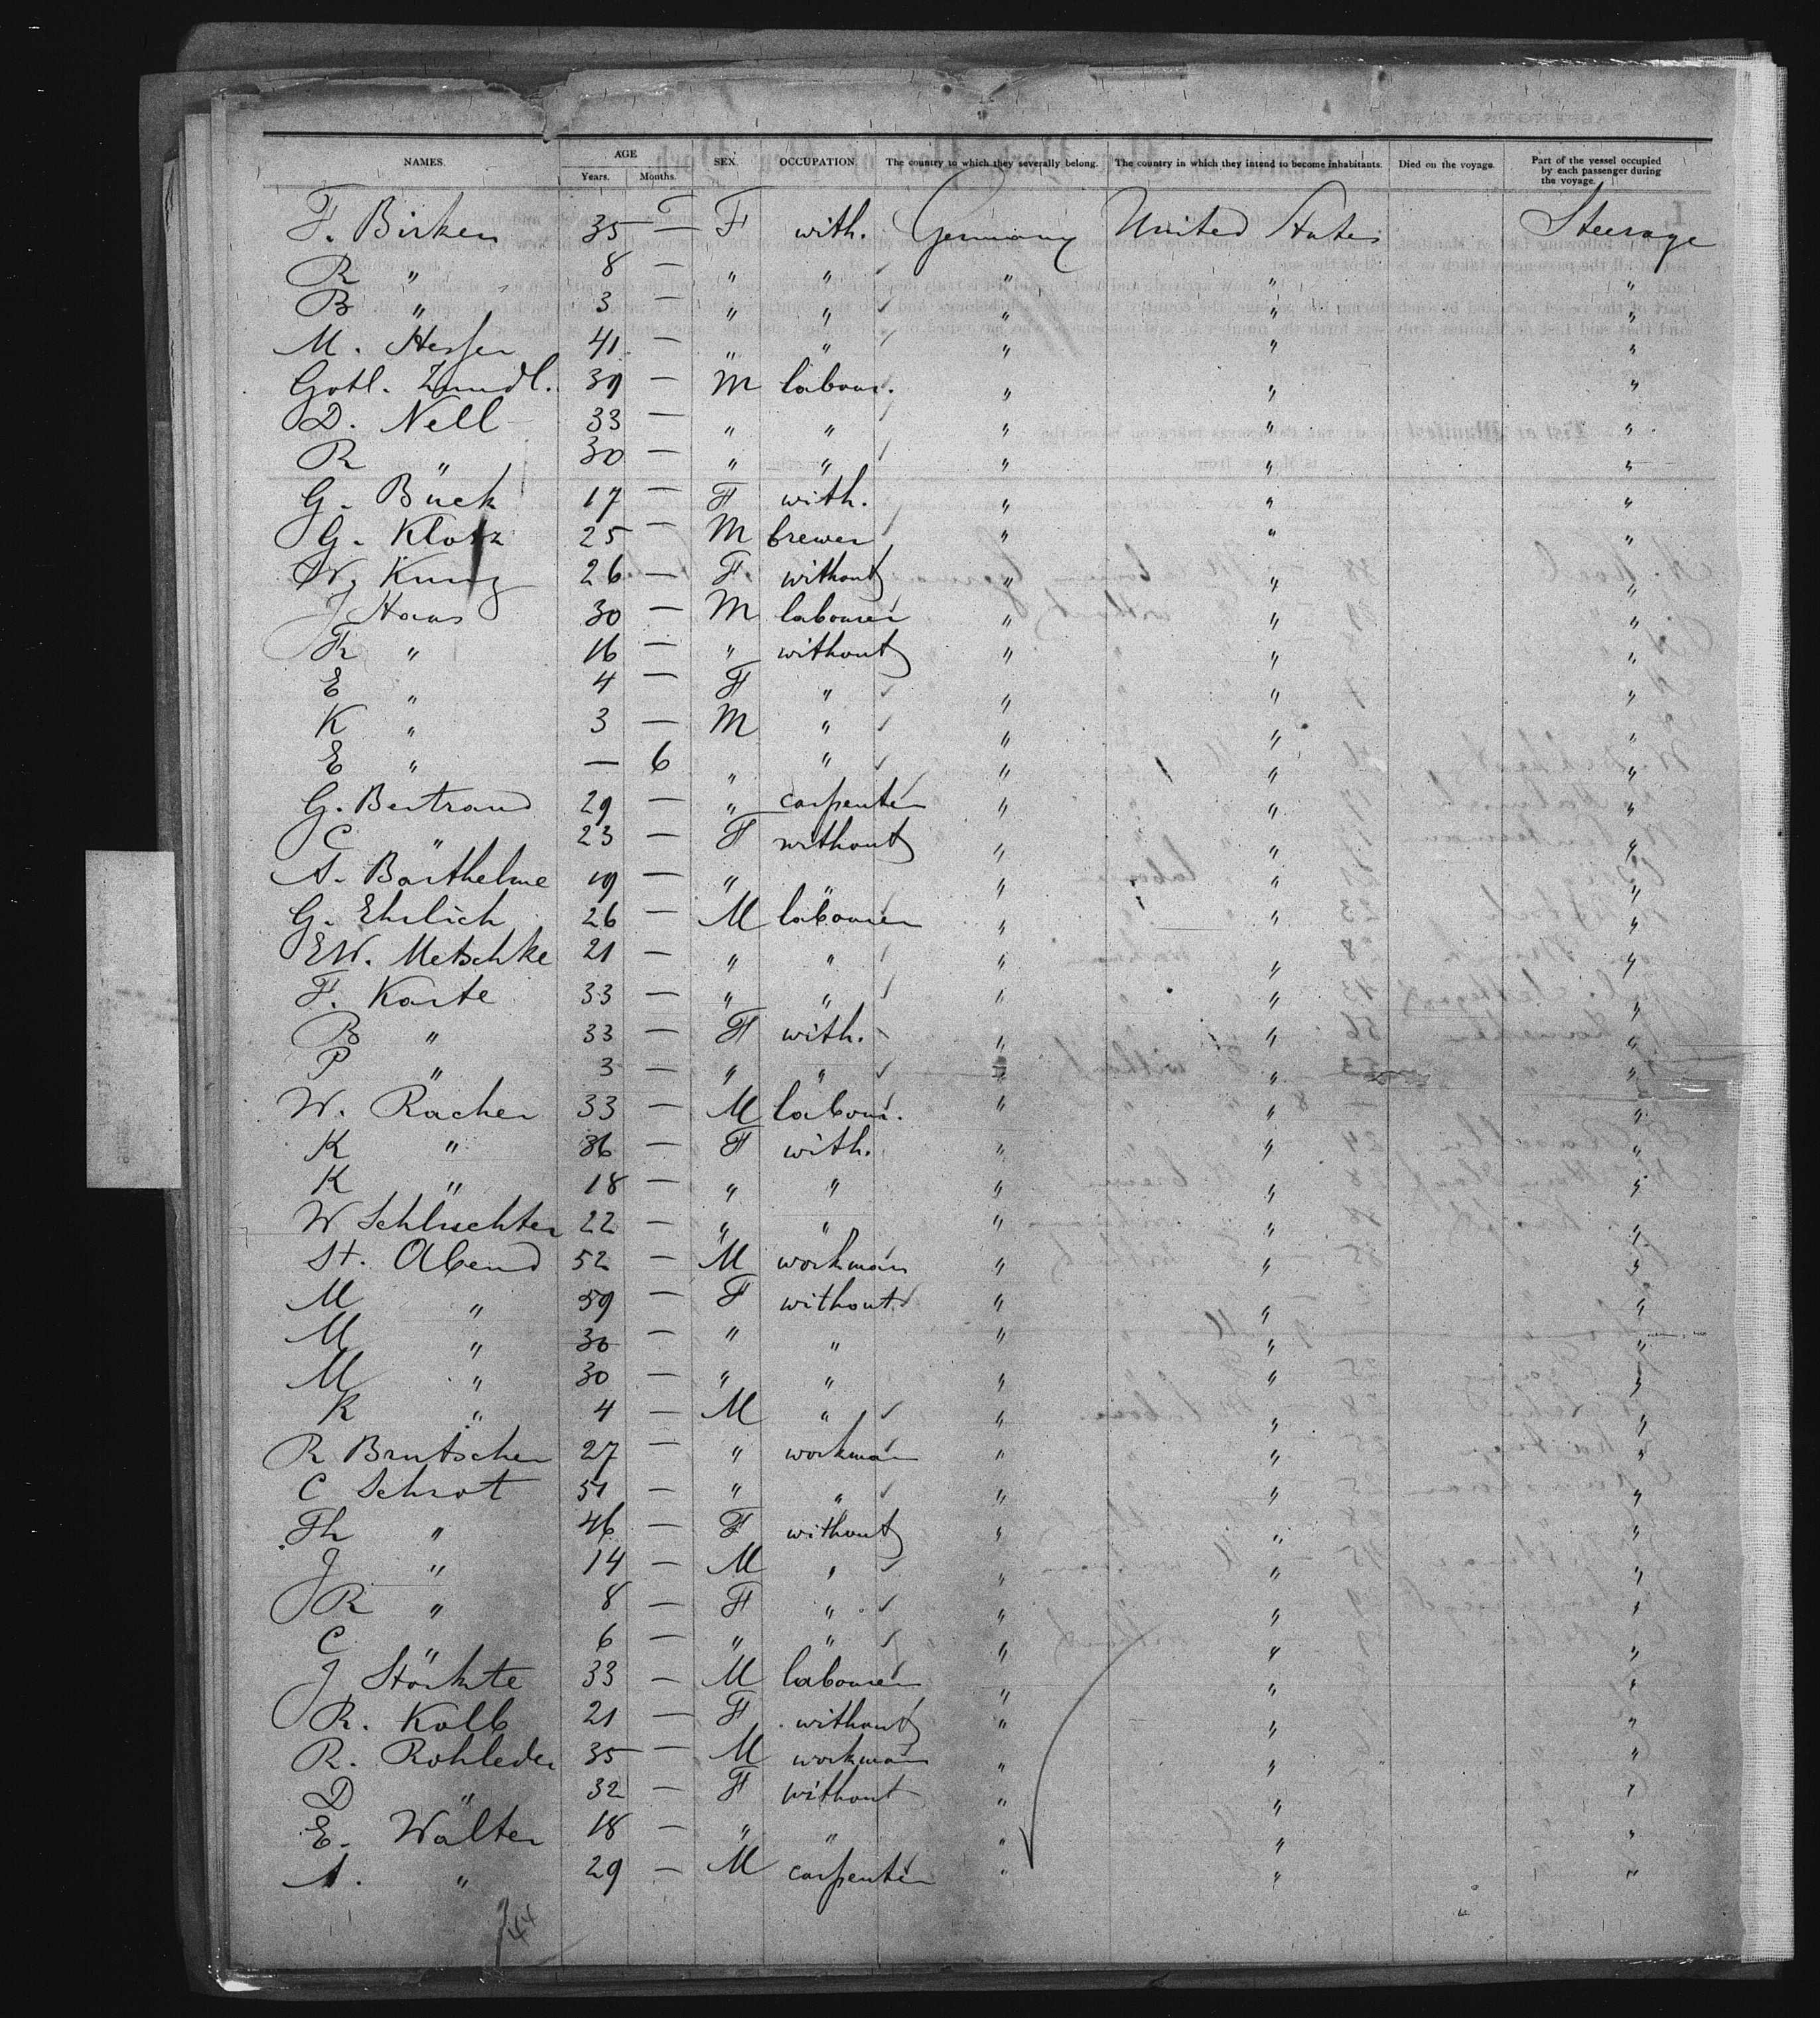 NAMES. AGE Years. Months. SEX. OCCUPATION. The country to which they severally belong. The country in which they intend to become inhabitants. Died on the voyage. Part of the vessel occupied by each passenger during the voyage.
F. Birken 35 — F with. Germany United States Steerage
R " 8 — " " " " "
B " 3 — " " " " "
M. Hesser 41 — " " " " "
Gotl. 39 — M labour. " " "
D. Nell 33 — " " " " "
R " 30 — " " " " "
G. Bück 17 — F with. " " "
G. Klotz 25 — M brewer " " "
W. Kunz 26 — F without " " "
J Haas 30 — M labourer " " "
Fr " 16 — " without " " "
E " 4 — F " " " "
K " 3 — M " " " "
E " — 6 " " " " "
G. Bertrand 29 — " carpenter " " "
C " 23 — F without " " "
A. Barthelme 19 — " " " " "
G. Ehrlich 26 — M labourer " " "
EW. Metschke 21 — " " " " "
F. Karte 33 — " " " " "
B " 33 — F with. " " "
P " 3 — " " " " "
W. Racher 33 — M labour. " " "
K " 36 — F with. " " "
K " 18 — " " " " "
W Schluchter 22 — " " " " "
St. Abend 52 — M workman " " "
M " 59 — F without " " "
M " 30 — " " " " "
M " 30 — " " " " "
K " 4 — M " " " "
R Brutscher 27 — " workman " " "
C Schrot 51 — " " " " "
Th " 46 — F without " " "
J " 14 — M " " " "
R " 8 — F " " " "
C " 6 — " " " " "
J Störkte 33 — M labourer " " "
R. Kolb 21 — F without " " "
R. Rohleder 35 — M workman " " "
D " 32 — F without " " "
E. Walter 18 — " " " " "
A. " 29 — M carpenter " " "
44